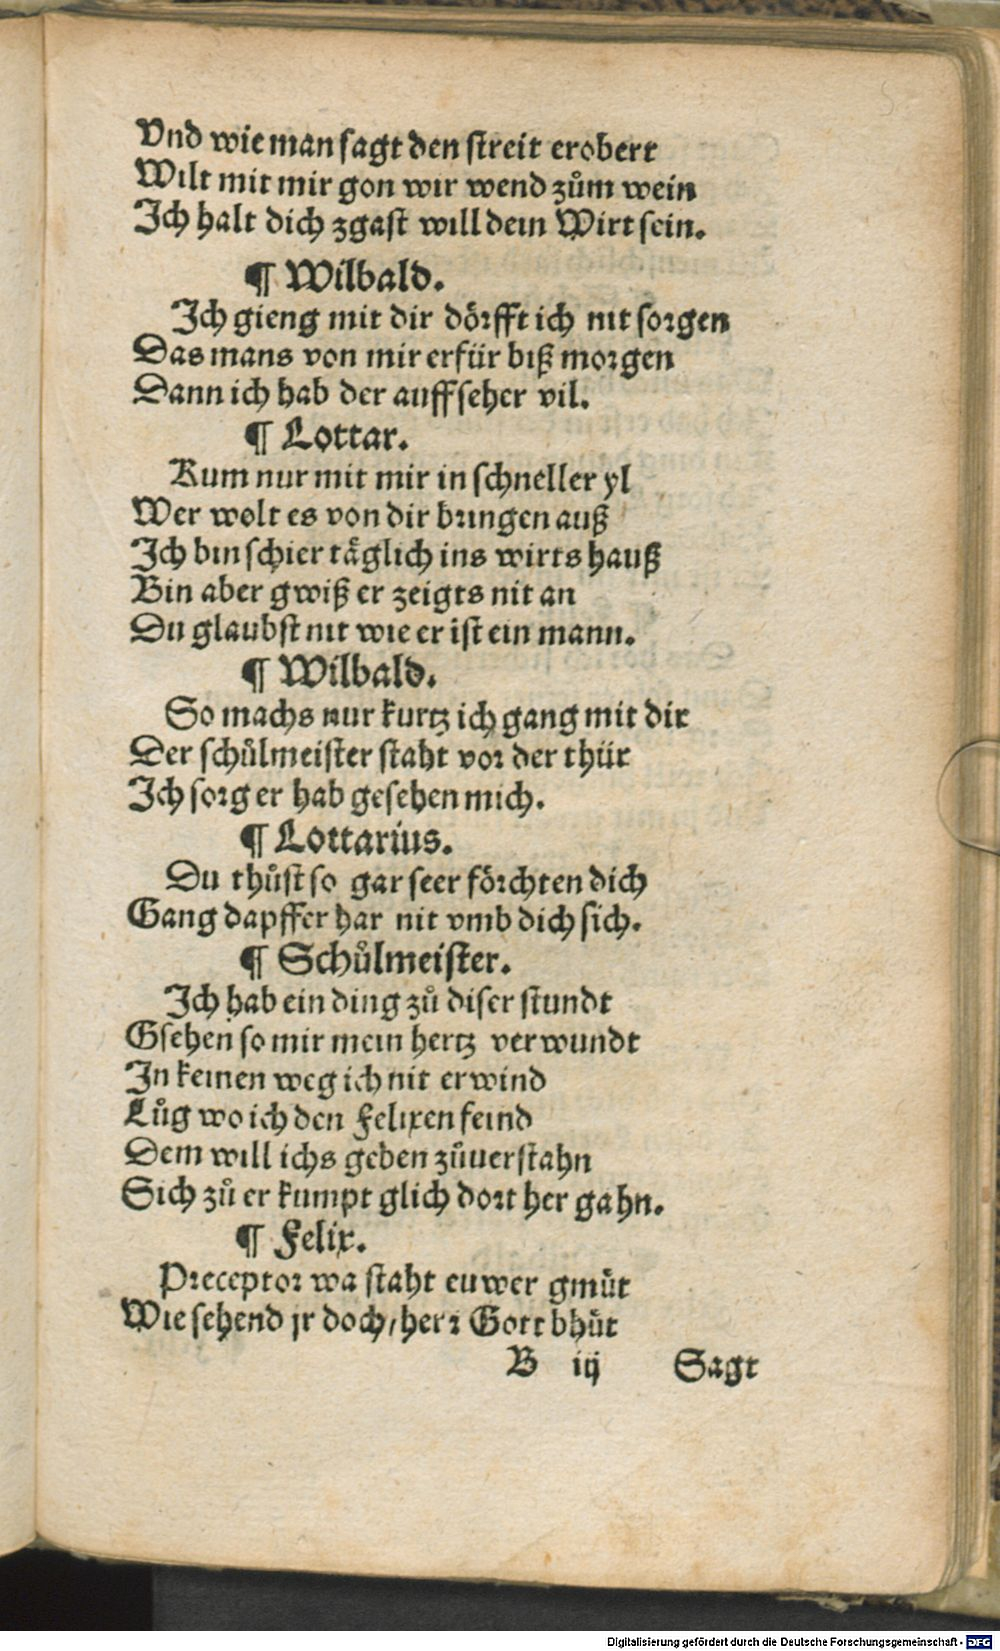 Vnd wie man sagt den streit erobert
Wilt mit mir gon wir wend zům wein
Ich halt dich zgast will dein Wirt sein.
¶ Wilbald.
Ich gieng mit dir dörfft ich nit sorgen
Das mans von mir erfür biß morgen
Dann ich hab der auffseher vil.
¶ Lottar.
Kum nur mit mir in schneller yl
Wer wolt es von dir bringen auß
Ich bin schier täglich ins wirts hauß
Bin aber gwiß er zeigts nit an
Du glaubst nit wie er ist ein mann.
¶ Wilbald.
So machs nur kurtz ich gang mit dir
Der schůlmeister staht vor der thür
Ich sorg er hab gesehen mich.
¶ Lottarius.
Du thůst so gar seer förchten dich
Gang dapffer har nit vmb dich sich.
¶ Schůlmeister.
Ich hab ein ding zů diser stundt
Gsehen so mir mein hertz verwundt
In keinen weg ich nit erwind
Lůg wo ich den Felixen feind
Dem will ichs geben zůuerstahn
Sich zů er kumpt glich dort her gahn.
¶ Felix.
Preceptor wa staht euwer gmüt
Wie sehend jr doch/ herr Gott bhüt
B iij Sagt
Digitalisierung gefördert durch die Deutsche Forschungsgemeinschaft - DFG